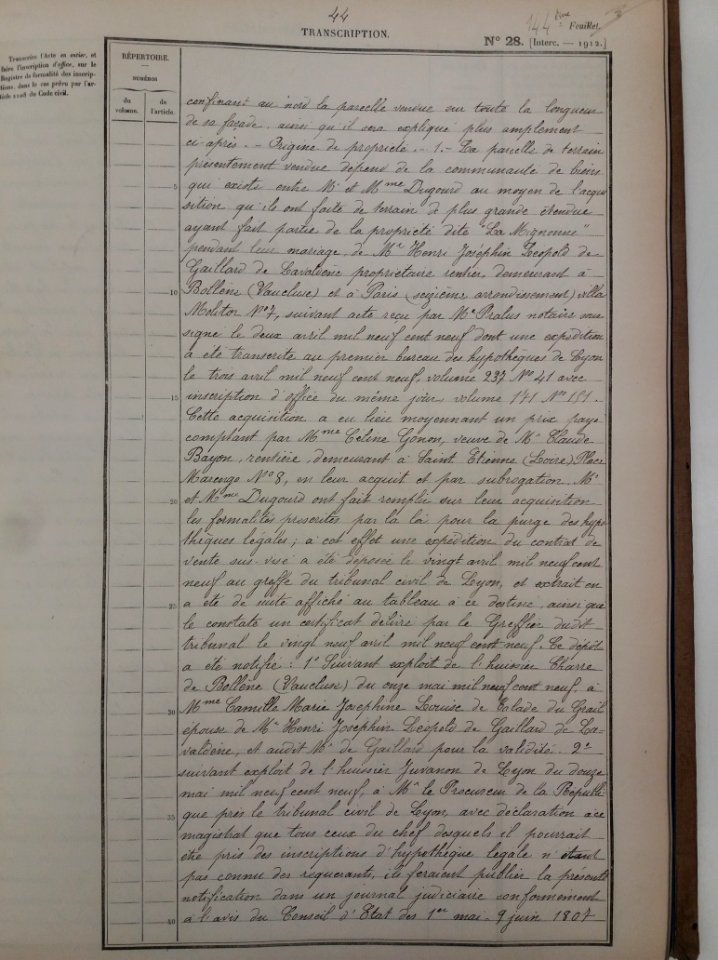 44
144 ème Feuillet.
TRANSCRIPTION.
N° 28. [Interc. — 1912.]
Transcrire l'Acte en entier, et
faire l'inscription d'office, sur le
Registre de formalité des inscrip-
tions, dans le cas prévu par l'ar-
ticle 2108 du Code civil.
RÉPERTOIRE.
NUMÉROS
du volume.
de l'article.
confinant au nord la parcelle vendue sur toute la longueur
de sa façade, ainsi qu'il sera expliqué plus amplement
ci-après. - Origine de propriété. - 1. - La parcelle de terrain
présentement vendue dépend de la communauté de biens
5 qui existe entre Mr et Mme Dugourd au moyen de l'acqui
sition qu'ils ont faite de terrain de plus grande étendue
ayant fait partie de la propriété dite "La Mignonne"
pendant leur mariage, de Mr Henri Joséphin Léopold de
Gaillard de Lavaldène propriétaire rentier, demeurant à
10 Bollène (Vaucluse) et à Paris (seizième arrondissement) villa
Molitor N° 7, suivant acte reçu par Me Pralus notaire sous
signé le deux avril mil neuf cent neuf dont une expédition
a été transcrite au premier bureau des hypothèques de Lyon
le trois avril mil neuf cent neuf, volume 237 N° 41 avec
15 inscription d'office du même jour volume 171 N° 151.
Cette acquisition a eu lieu moyennant un prix payé
comptant par Mme Céline Gonon, veuve de Mr Claude
Bayon, rentière, demeurant à Saint Etienne (Loire) Place
Marengo N° 8, en leur acquit et par subrogation. Mr
20 et Mme Dugourd ont fait remplir sur leur acquisition
les formalités prescrites par la loi pour la purge des hypo
thèques légales; à cet effet une expédition du contrat de
vente sus-visé a été déposée le vingt avril mil neuf cent
neuf au greffe du tribunal civil de Lyon, et extrait en
25 a été de suite affiché au tableau à ce destiné, ainsi que
le constate un certificat délivré par le Greffier dudit
tribunal le vingt neuf avril mil neuf cent neuf. Ce dépôt
a été notifié: 1° Suivant exploit de l'huissier Charre
de Bollène (Vaucluse) du onze mai mil neuf cent neuf, à
30 Mme Camille Marie Joséphine Louise de Talade du Grail
épouse de Mr Henri Joséphin Léopold de Gaillard de La-
valdène, et audit Mr de Gaillard pour la validité. 2°
suivant exploit de l'huissier Juvanon de Lyon du douze
mai mil neuf cent neuf, à Mr le Procureur de la Républi
35 que près le tribunal civil de Lyon avec déclaration à ce
magistrat que tous ceux du chef desquels il pourrait
être pris des inscriptions d'hypothèque légale n'étant
pas connu des requérants, ils feraient publier la présente
notification dans un journal judiciaire conformément
40 à l'avis du Conseil d'Etat des 1er mai - 9 juin 1807